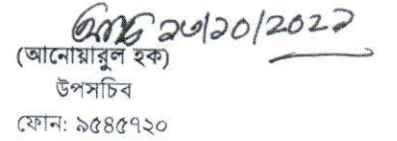 ২৩/১০/২০২২
(আনোয়ারুল হক)
উপসচিব
ফোন: ৯৫৪৫৭২০